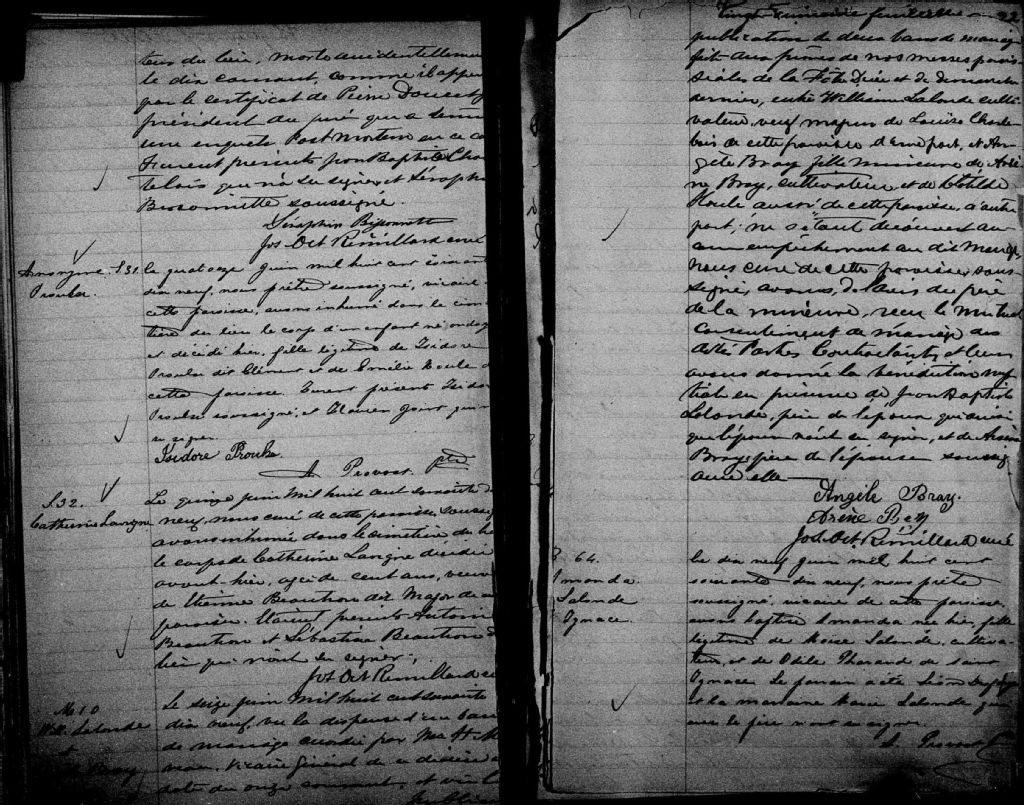 teur du lieu, mort accidentellement
le dix courant, comme il appert
par le certificat de Pierre Doucet
président du juré qui a tenu
une enquête Post Mortem en ce cas
Furent présents Jean Baptiste Char
lebois qui n'a su signer et Séraphin
Bissonnette soussigné.
Séraphin Bissonnette
Jos. Oct. Rémillard curé
Anonyme S.31.
Proulx.
Le quatorze juin mil huit cent soixante
dix neuf, nous prêtre soussigné, vicaire de
cette paroisse, avons inhumé dans le cime
tière du lieu le corps d'un enfant né ondoyé
et décédé hier, fille légitime de Isidore
Proulx dit Clément et de Emélie Houle de
cette paroisse. Furent présent Isidore
Proulx soussigné, et
su signer.
Isidore Proulx
A Provost ptre
S.32.
Catherine Lavigne
Le quinze juin mil huit cent soixante dix
neuf, nous curé de cette paroisse, soussigné
avons inhumé dans le cimetière du lieu
le corps de Catherine Lavigne décédée
avant-hier, agée de cent ans, veuve
de Etienne Beautron dit Major de cette
paroisse. Etaient présents Antoine
Beautron et Sébastien Beautron
lieu qui n'ont su signer.
Jos. Oct. Rémillard curé
M 10
Will. Lalonde
et
Bray
Le seize juin mil huit cent soixante
dix neuf, vu la dispense d'un ban
de mariage accordée par
Vicaire Général de ce diocèse en
date du onze courant, et vu la
publica
Vingt-deuxième feuillet 22
publication de deux bans de mariage
fait aux prônes de nos messes parois
siales de la Fête Dieu et de dimanche
dernier, entre William Lalonde culti
vateur, veuf majeur de Louise Charle
bois de cette paroisse d'une part, et An
gèle Bray fille mineure de Arsè
ne Bray, cultivateur et de Clotilde
Houle aussi de cette paroisse, d'autre
part; ne s'étant découvert au
cun empêchement au dit mariage,
nous curé de cette paroisse sous
signé, avons, de l'avis du père
de la mineure, reçu le mutuel
consentement de mariage des
dites Parties Contractantes, et leur
avons donné la bénédiction nup
tiale en présence de Jean Baptiste
Lalonde, père de l'époux qui ainsi
que l'époux n'ont su signer, et de Arsène
Bray, père de l'épouse soussigné
avec elle
Angèle Bray.
Arsène Bray
Jos. Oct. Rémillard curé
B 64.
Amanda
Lalonde
Ignace.
Le dix neuf juin mil huit cent
soixante dix neuf, nous prêtre
soussigné vicaire de cette paroisse,
avons baptisé Amanda née hier, fille
légitime de Moïse Lalonde, cultiva
teur, et de Odile Tharand de saint
Ignace. Le parrain a été Léon
et la marraine Marie Lalonde qui
avec le père n'ont su signer.
A. Provost Ptre